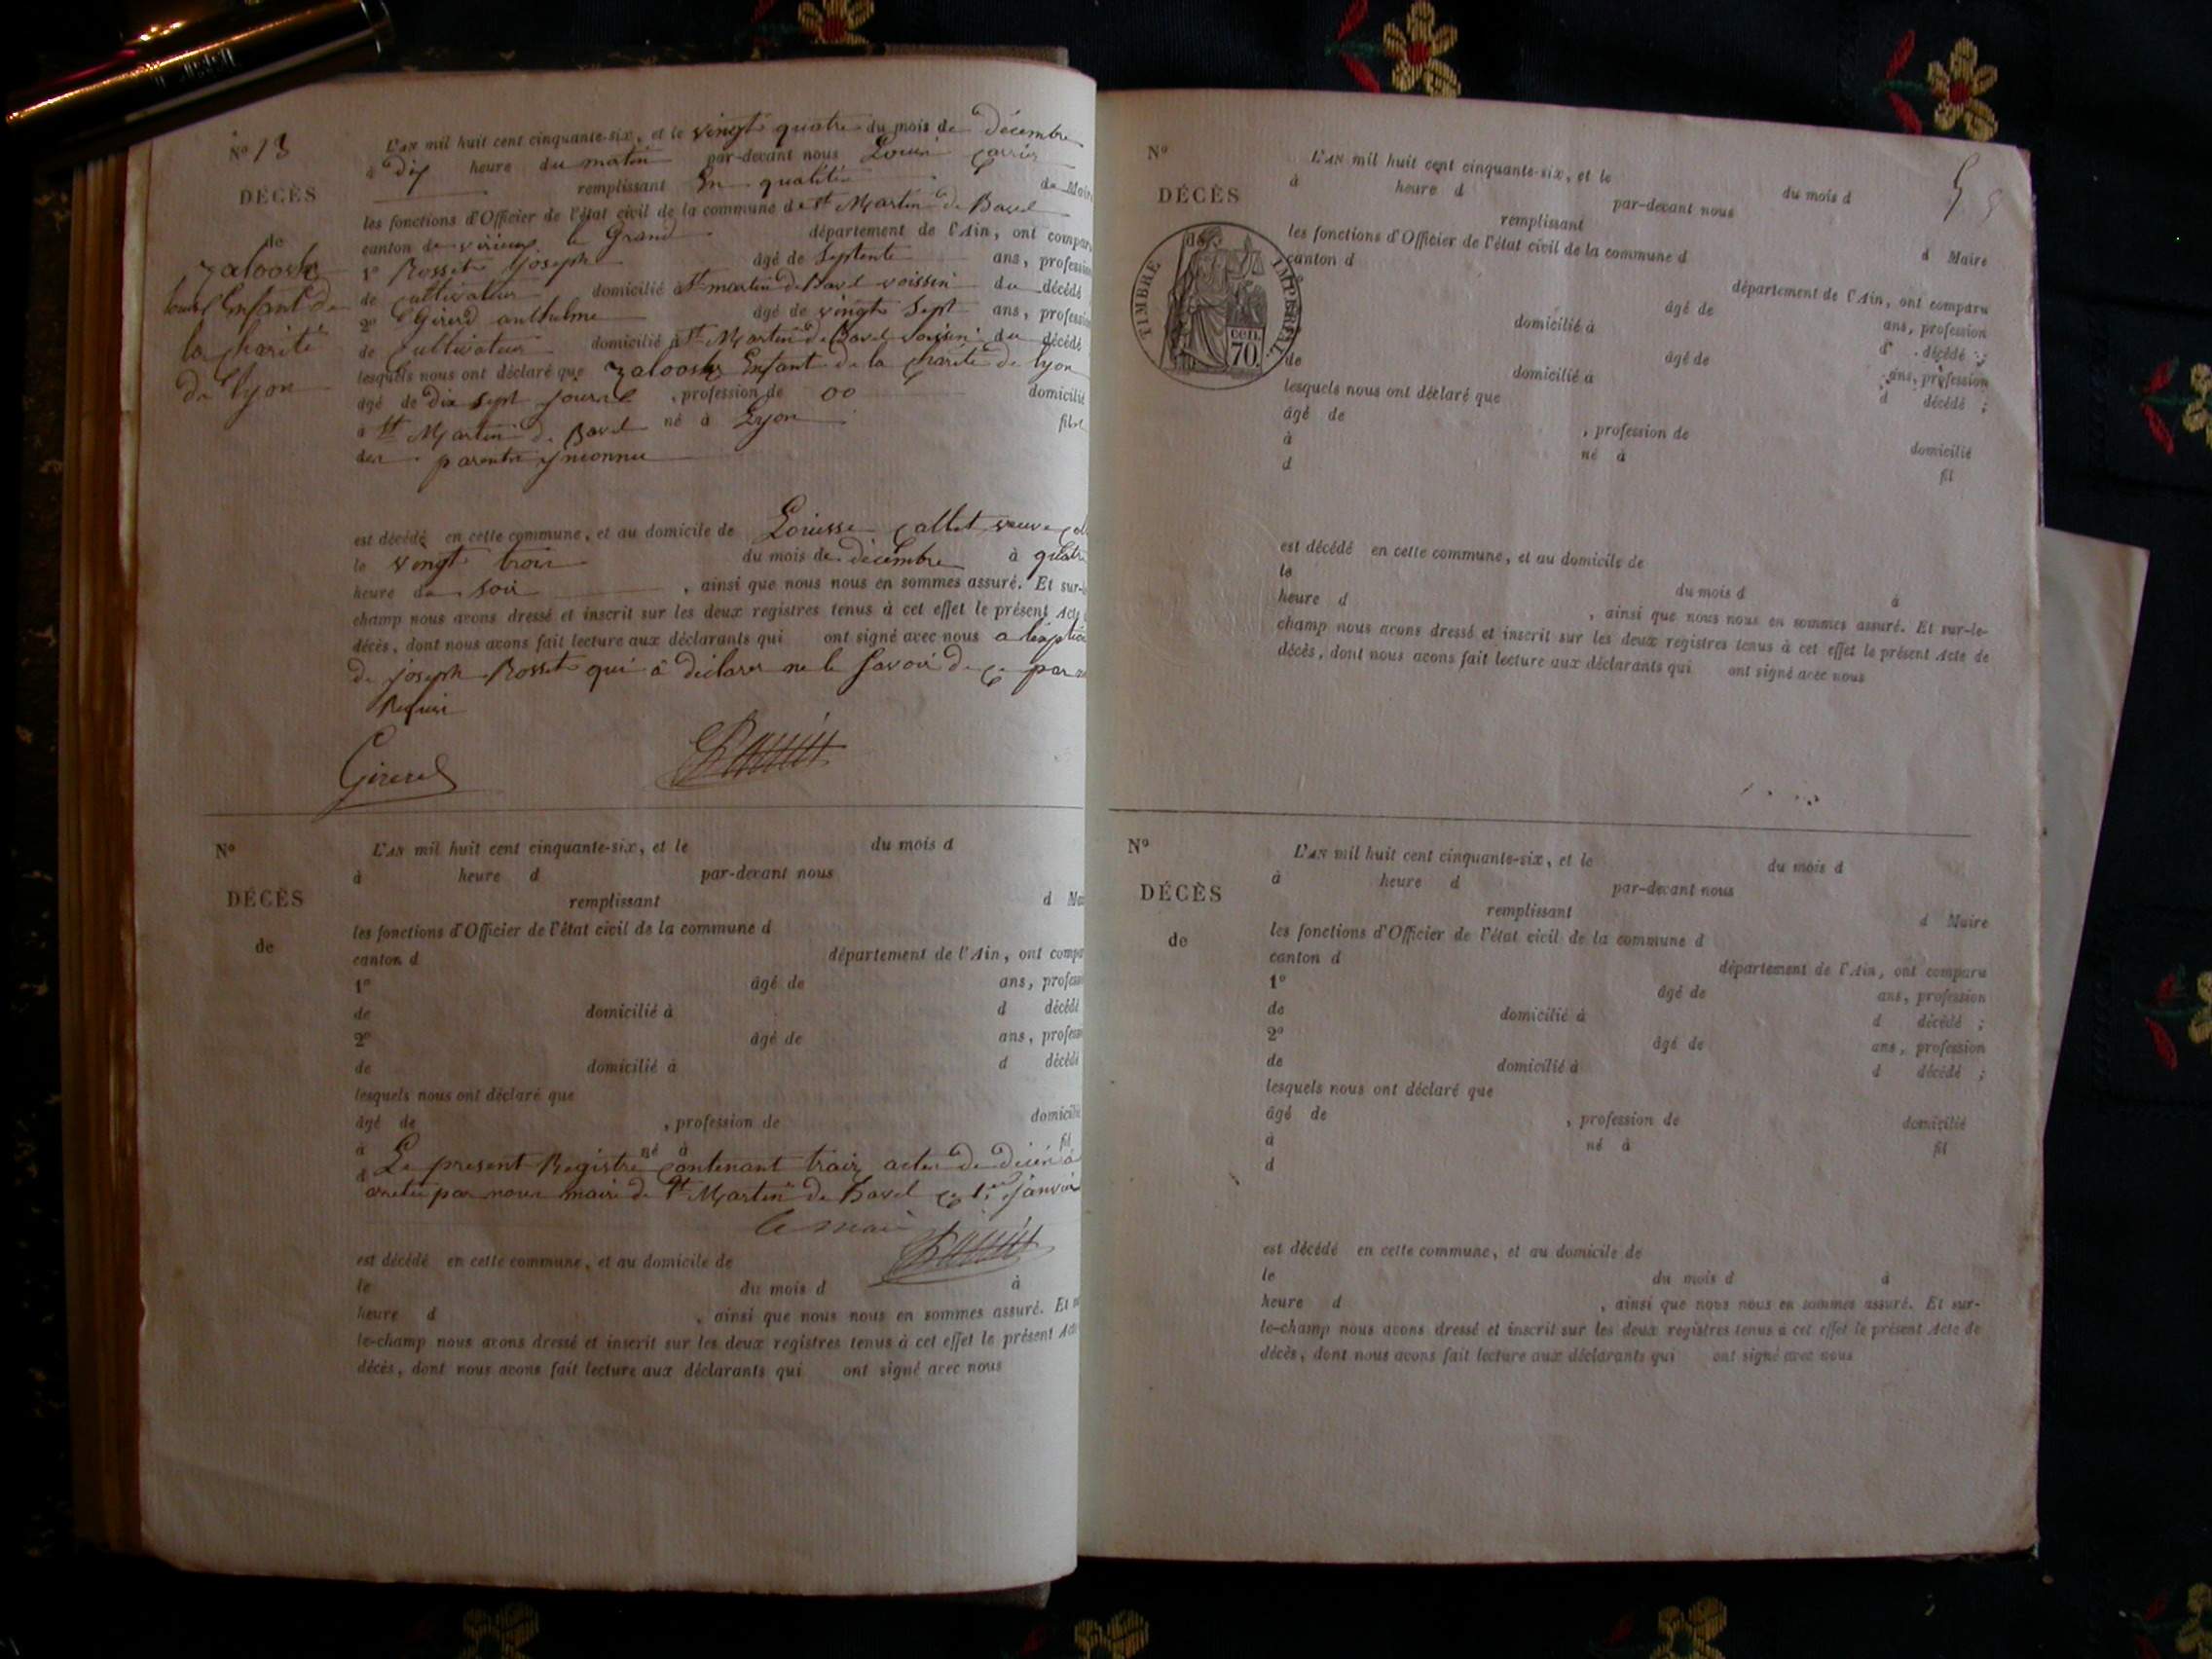 N° 13
DÉCÈS
de
zaloosky
Enfant de
la charité
de lyon
L'AN mil huit cent cinquante-six, et le vingt quatre du mois de décembre
à dix heure du matin par-devant nous Louis
remplissant En qualité de Maire
les fonctions d'Officier de l'état civil de la commune de St Martin de Bavel
canton de virieux le Grand département de l'Ain, ont comparu
1° Rosset Joseph âgé de septente ans, profession
de cultivateur domicilié à St martin de Bavel voissin du décédé
2° Girerd anthelme âgé de vingt sept ans, profession
de cultivateur domicilié à St Martin de Bavel voissin du décédé
lesquels nous ont déclaré que zaloosky Enfant de la charité de lyon
âgé de dix sept jours, profession de 00 domicilié
à St Martin de Bavel né à Lyon fils
des parents jnconnu
est décédé en cette commune, et au domicile de Louisse Callet veuve
le vingt trois du mois de décembre à quatre
heure du soir, ainsi que nous nous en sommes assuré. Et sur-le-
champ nous avons dressé et inscrit sur les deux registres tenus à cet effet le présent Acte
décès, dont nous avons fait lecture aux déclarants qui ont signé avec nous a
de joseph Rosset qui a déclarer ne le savoir de ce par
Requis
Girerd
N°
DÉCÈS
de
L'AN mil huit cent cinquante-six, et le du mois d
à heure d par-devant nous
remplissant d Ma
les fonctions d'Officier de l'état civil de la commune d
canton d département de l'Ain, ont compa
1° âgé de ans, profess
de domicilié à d décédé
2° âgé de ans, profess
de domicilié à d décédé
lesquels nous ont déclaré que
âgé de , profession de domicilié
à né à fil
d
Le present Registre contenant traiz actes de décès a
arretée par nous maire de St Martin de Bavel ce 1er janvier
le maire
est décédé en cette commune, et au domicile de
le du mois d à
heure d , ainsi que nous nous en sommes assuré. Et
le-champ nous avons dressé et inscrit sur les deux registres tenus à cet effet le présent Acte
décès, dont nous avons fait lecture aux déclarants qui ont signé avec nous
N°
DÉCÈS
de
TIMBRE IMPÉRIAL
70 cen.
L'AN mil huit cent cinquante-six, et le du mois d
à heure d par-devant nous
remplissant d Maire
les fonctions d'Officier de l'état civil de la commune d
canton d département de l'Ain, ont comparu
âgé de ans, profession
domicilié à d décédé ;
âgé de ans, profession
de domicilié à d décédé ;
lesquels nous ont déclaré que
âgé de , profession de domicilié
à né à fil
d
est décédé en cette commune, et au domicile de
le du mois d à
heure d , ainsi que nous nous en sommes assuré. Et sur-le-
champ nous avons dressé et inscrit sur les deux registres tenus à cet effet le présent Acte de
décès, dont nous avons fait lecture aux déclarants qui ont signé avec nous
N°
DÉCÈS
de
L'AN mil huit cent cinquante-six, et le du mois d
à heure d par-devant nous
remplissant d Maire
les fonctions d'Officier de l'état civil de la commune d
canton d département de l'Ain, ont comparu
1° âgé de ans, profession
de domicilié à d décédé ;
2° âgé de ans, profession
de domicilié à d décédé ;
lesquels nous ont déclaré que
âgé de , profession de domicilié
à né à fil
d
est décédé en cette commune, et au domicile de
le du mois d à
heure d , ainsi que nous nous en sommes assuré. Et sur-
le-champ nous avons dressé et inscrit sur les deux registres tenus à cet effet le présent Acte de
décès, dont nous avons fait lecture aux déclarants qui ont signé avec nous